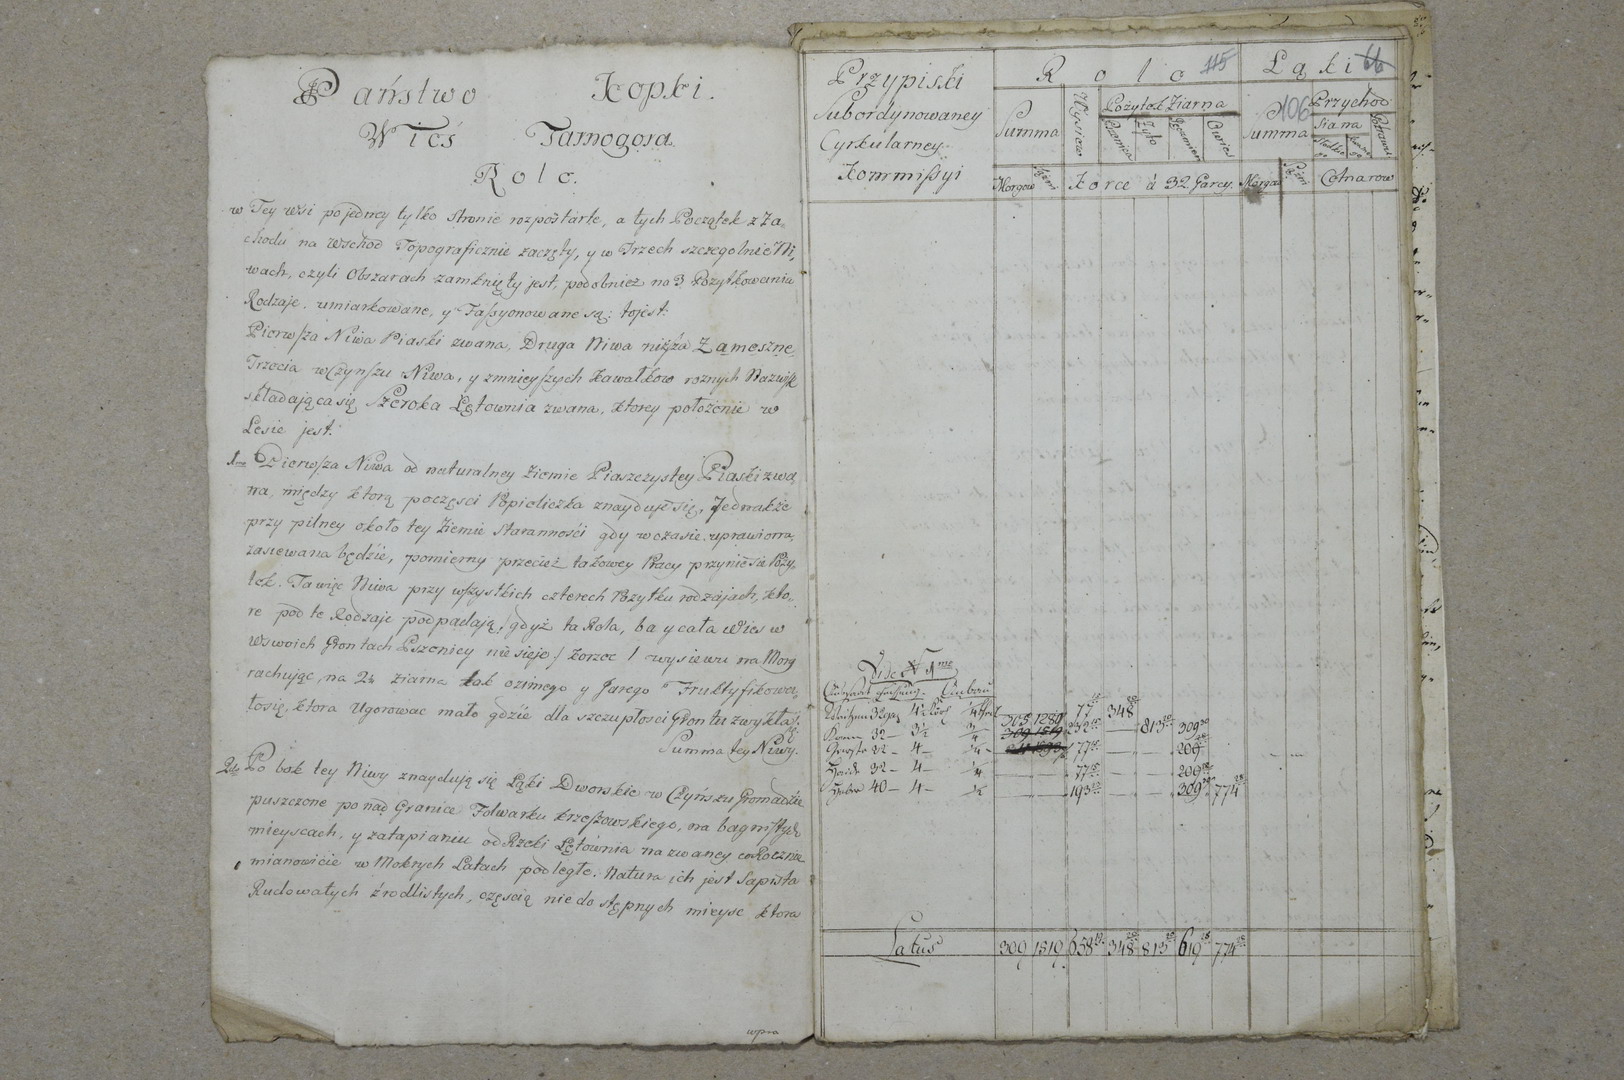 Państwo Kopki.
Wieś Tarnogora
Role.
w Tey wsi po jedney tylko stronie rozpostarte, a tych Początek z Za
chodu na Wschod Topograficznie zaczęty, y w Trzech szczegolnie Ni,
wach, czyli Obszarach zamknięty jest, podobnież na 3 Pożytkowania
Rodzaje, umiarkowane, y Fassyonowane są: tojest:
Pierwsza Niwa Piaski zwana, Druga Niwa niższa Zamoszne,
Trzecia w Czynszu Niwa, y zmnieyszych Kawałkow roznych Nazwisk
składająca się Szeroka Łętownia zwana, ktorey położenie w
Lesie jest:
1mo Pierwsza Niwa od naturalney Ziemie Piaszczystey Piaski zwa
na, między ktorą poczęsci Popieliczka znayduje się, Jednakże
przy pilney około tey Ziemie Staranności gdy w czasie uprawiona,
zasiewana będzie, pomierny przecież takowey Pracy przyniesie Poży,
tek. Ta więc Niwa przy wszystkich czterech Pożytku rodzajach, kto,
re pod te Rodzaje podpadają, gdyż ta Rola, ba y cała Wieś w
wswoich Gruntach Pszenicy nie sieje / Korzec 1 wysiewu na Morg
rachując, na 2½ ziarna tak ozimego y Jarego Fruktyfikowa,
ła się, ktora Ugorowac mało gdzie dla szczupłosci Gruntu zwykła.
Summa tey Niwy.
2do Po bok tey Niwy znaydują się Łąki Dworskie w Czyńszu Gromadzie
puszczone ponad Granice Folwarku Krzeszowskiego, na bagnistych
mieyscach, y zatapianiu od Rzeki Łętownia nazwaney co Rocznie
mianowicie w Mokrych Latach podległe. Natura ich jest Sapista
Rudowatych źrodlistych, częscią niedostępnych mieysc ktora
wpra
Przypiski
Subordynowaney
Cyrkularney
Kommissyi
Role 115
Łąki 66
106
Summa
Wysiew
Pożytek Ziarna
Pszenica
Żyto
Jęczmien
Owies
Summa
Przychod
Siana
Potrawu
Morgow
Sążni
Korce à 32 Garcy.
Morgow
Sążni
Cetnarow
Vide N 1mo
Anbau
Weitzen 32 4
Korn 32 – 3½ 3/4
Gerste 32 – 4 –
Haide 32 – 4 – 1/4
Haber 40 – 4 –
305 1289
309 1519
77 348
232 813 309
77 – – 209
77 – – 209
193 – – 309 774
Latus 309 1519 658 348 813 619 774